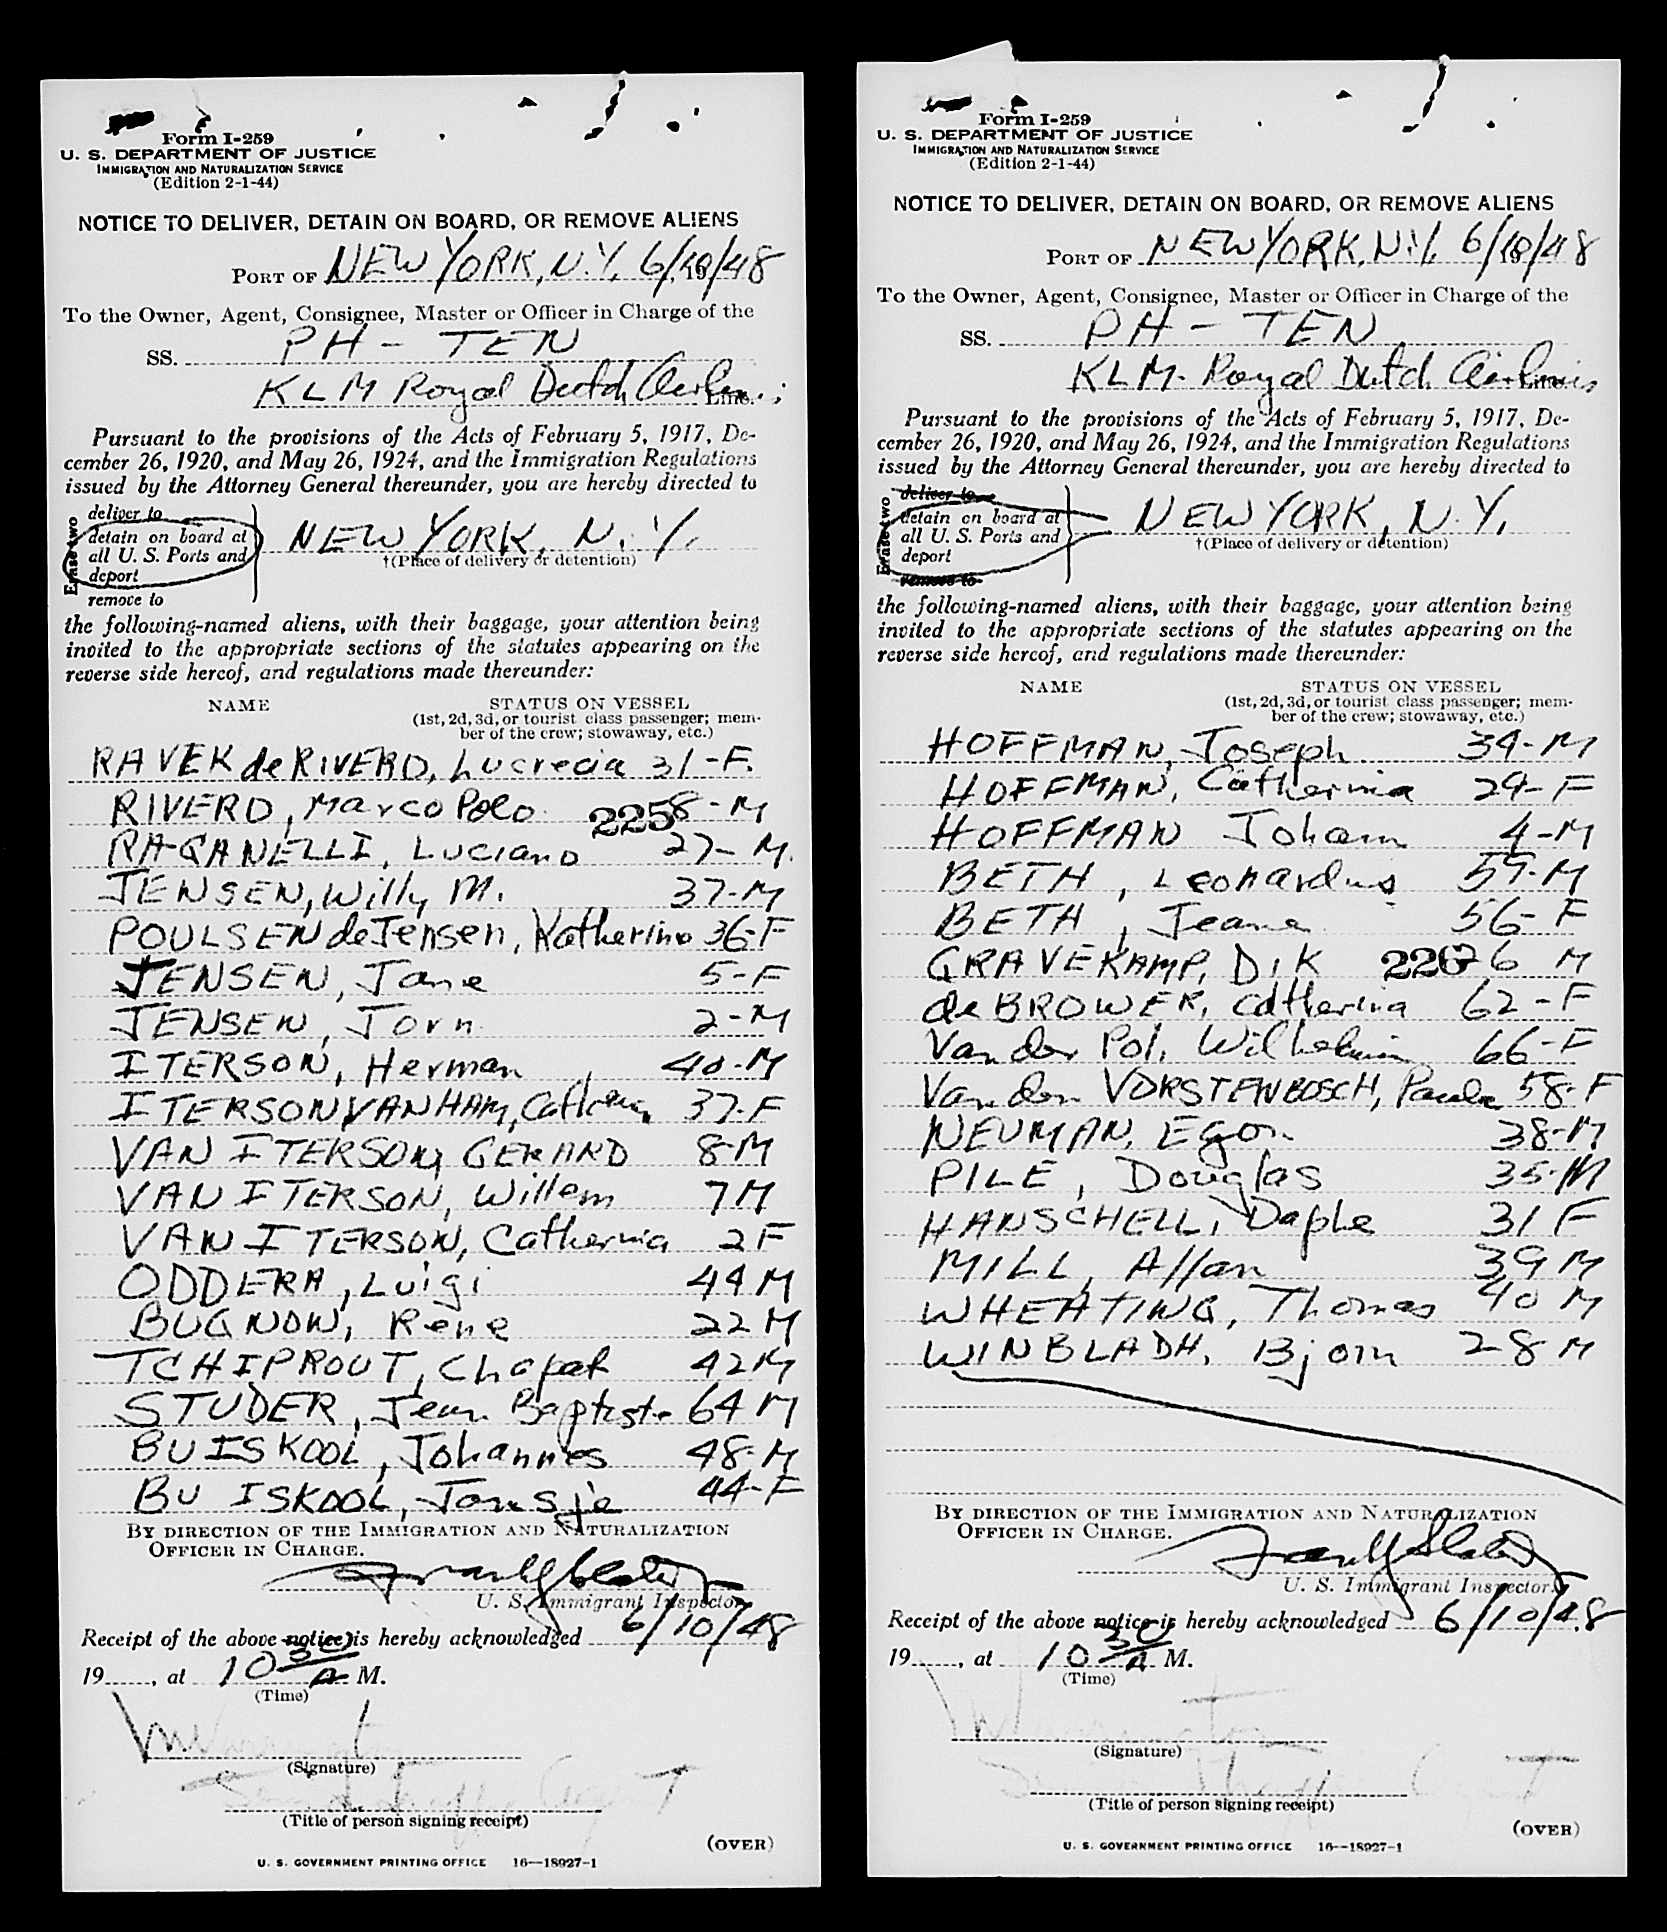 Form I-259
U. S. DEPARTMENT OF JUSTICE
IMMIGRATION AND NATURALIZATION SERVICE
(Edition 2-1-44)
NOTICE TO DELIVER, DETAIN ON BOARD, OR REMOVE ALIENS
PORT OF NEW YORK, N.Y. 6/10/48
To the Owner, Agent, Consignee, Master or Officer in Charge of the
SS. PH - TEN
KLM Royal Dutch Airlines Line.
Pursuant to the provisions of the Acts of February 5, 1917, De-
cember 26, 1920, and May 26, 1924, and the Immigration Regulations
issued by the Attorney General thereunder, you are hereby directed to
Erase two
deliver to
detain on board at
all U. S. Ports and
deport
remove to
NEW YORK, N.Y.
†(Place of delivery or detention)
the following-named aliens, with their baggage, your attention being
invited to the appropriate sections of the statutes appearing on the
reverse side hereof, and regulations made thereunder:
NAME STATUS ON VESSEL
(1st, 2d, 3d, or tourist class passenger; mem-
ber of the crew; stowaway, etc.)
RAVEK de RIVERO, Lucrecia 31-F.
RIVERO, Marco Polo 2258 8-M
RAGANELLI, Luciano 27-M.
JENSEN, Willy M. 37-M
POULSEN de Jensen, Katherine 36-F
JENSEN, Jane 5-F
JENSEN, Jorn 2-M
ITERSON, Herman 40-M
ITERSON VAN HAM, Catherina 37-F
VAN ITERSON, GERARD 8-M
VAN ITERSON, Willem 7M
VAN ITERSON, Catherina 2F
ODDERA, Luigi 44M
BUGNON, Rene 22M
TCHIPROUT, Chapat 42M
STUDER, Jean Baptiste 64M
BUISKOOL, Johannes 48-M
BUISKOOL, Jansje 44-F
BY DIRECTION OF THE IMMIGRATION AND NATURALIZATION
OFFICER IN CHARGE.
U. S. Immigrant Inspector.
Receipt of the above notice is hereby acknowledged 6/10/48
19......, at 10 30 A M.
(Time)
(Signature)
Agent
(Title of person signing receipt)
(OVER)
U. S. GOVERNMENT PRINTING OFFICE 16—18927-1
Form I-259
U. S. DEPARTMENT OF JUSTICE
IMMIGRATION AND NATURALIZATION SERVICE
(Edition 2-1-44)
NOTICE TO DELIVER, DETAIN ON BOARD, OR REMOVE ALIENS
PORT OF NEW YORK, N.Y. 6/10/48
To the Owner, Agent, Consignee, Master or Officer in Charge of the
SS. PH - TEN
KLM. Royal Dutch Airlines Line.
Pursuant to the provisions of the Acts of February 5, 1917, De-
cember 26, 1920, and May 26, 1924, and the Immigration Regulations
issued by the Attorney General thereunder, you are hereby directed to
Erase two
deliver to
detain on board at
all U. S. Ports and
deport
remove to
NEW YORK, N.Y.
†(Place of delivery or detention)
the following-named aliens, with their baggage, your attention being
invited to the appropriate sections of the statutes appearing on the
reverse side hereof, and regulations made thereunder:
NAME STATUS ON VESSEL
(1st, 2d, 3d, or tourist class passenger; mem-
ber of the crew; stowaway, etc.)
HOFFMAN, Joseph 34-M
HOFFMAN, Catherina 29-F
HOFFMAN Johann 4-M
BETH, Leonardus 59-M
BETH, Jeane 56-F
GRAVEKAMP, Dik 26 M
de BROWER, Catherina 62-F
Van der Pol, Wilhelmin 66-F
Van den VORSTENBOSCH, Paula 58-F
NEUMAN, Egon 38-M
PILE, Douglas 35-M
HANSCHELL, Daphe 31 F
MILL, Allan 39 M
WHEATING, Thomas 40 M
WINBLADH, Bjorn 28 M
BY DIRECTION OF THE IMMIGRATION AND NATURALIZATION
OFFICER IN CHARGE.
U. S. Immigrant Inspector.
Receipt of the above notice is hereby acknowledged 6/10/48
19......, at 10 30 A M.
(Time)
(Signature)
(Title of person signing receipt)
(OVER)
U. S. GOVERNMENT PRINTING OFFICE 16—18927-1